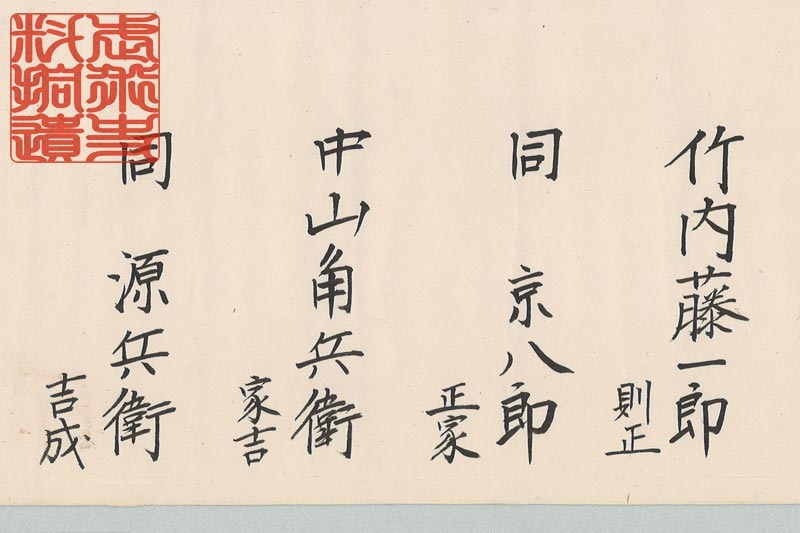 竹内藤一郎
則正
同 京八郎
正家
中山角兵衛
家吉
同 源兵衛
吉成